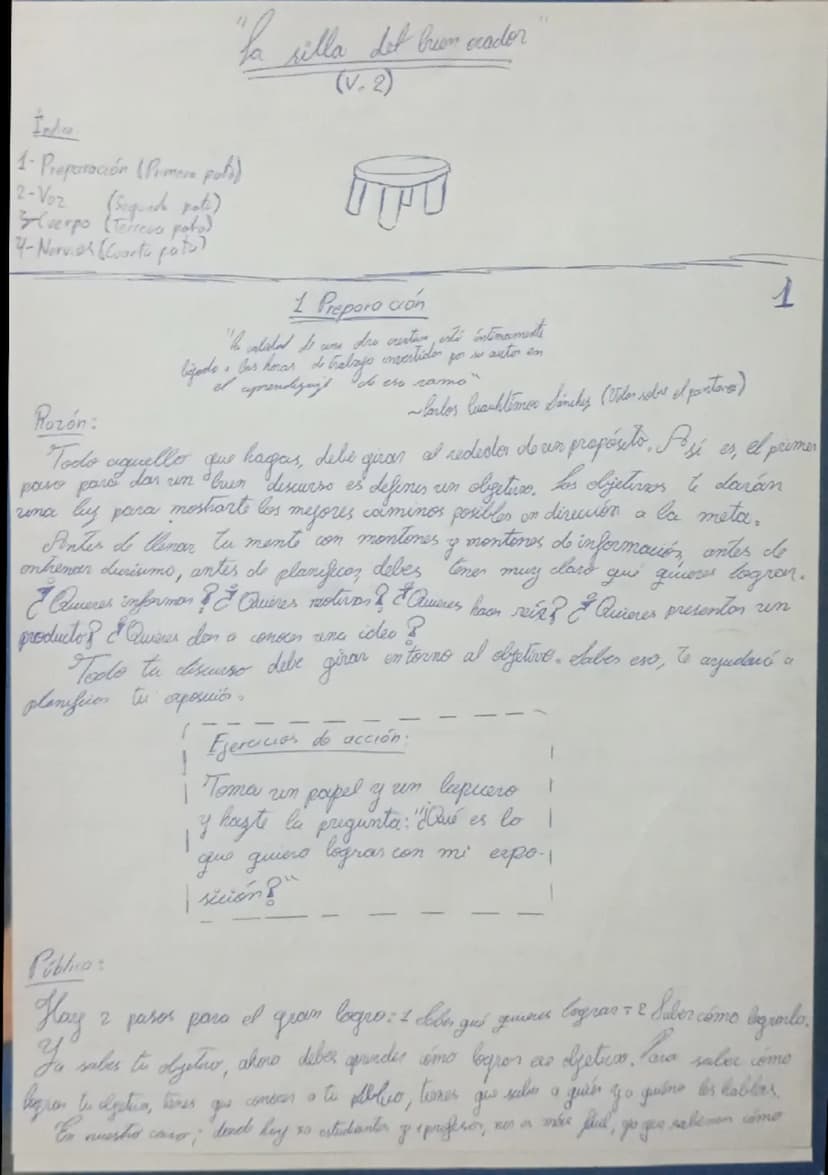 "La silla del buen orador"
(V. 2)
Índice
1- Preparación (Primera pata)
2- Voz (Segunda pata)
3- Cuerpo (Tercera pata)
4- Nervios (Cuarta pata)
1
1 Preparación
"La calidad de una obra creativa está íntimamente
ligada a las horas de trabajo invertidas por su autor en
el aprendizaje de ese ramo"
~Carlos Cuauhtémoc Sánchez (Volar sobre el pantano)
Razón:
Todo aquello que hagas, debe girar al rededor de un propósito. Así es, el primer
paso para dar un buen discurso es definir un objetivo. Los objetivos te darán
una luz para mostrarte los mejores caminos posibles en dirección a la meta.
Antes de llenar tu mente con montones y montones de información, antes de
entrenar durísimo, antes de planificar, debes tener muy claro qué quieres lograr.
¿Quieres informar? ¿Quieres motivar? ¿Quieres hacer reír? ¿Quieres presentar un
producto? ¿Quieres dar a conocer una idea?
Todo tu discurso debe girar en torno al objetivo. Saber eso, te ayudará a
planificar tu exposición.
Ejercicios de acción:
Toma un papel y un lapicero
y hazte la pregunta: "¿Qué es lo
que quiero lograr con mi expo-
sición?"
Público:
Hay 2 pasos para el gran logro: 1 Saber qué quieres lograr 2 Saber cómo lograrlo.
Ya sabes tu objetivo, ahora debes aprender cómo lograr ese objetivo. Para saber cómo
lograr tu objetivo, tienes que conocer a tu público, tienes que saber a quién y a quiénes les hablas.
En nuestro caso, donde hay estudiantes y profesor, nos es más fácil, ya que sabemos cómo